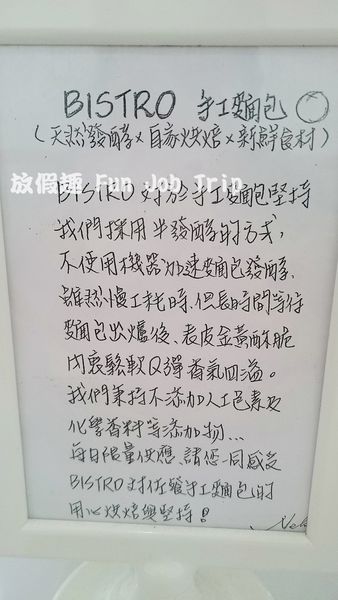 BISTRO 手工麵包
(天然發酵×自家烘焙×新鮮食材)
放假趣 Fun Job Trip
BISTRO 對於手工麵包堅持
我們採用半發酵的方式,
不使用機器加速麵包發酵,
雖然慢工耗時,但長時間等待
麵包出爐後、表皮金黃酥脆
內裏鬆軟Q彈香氣四溢。
我們秉持不添加人工色素及
化學香料等添加物...
每日限量供應、請您一同感受
BISTRO 對佐餐手工麵包的
用心烘焙與堅持!